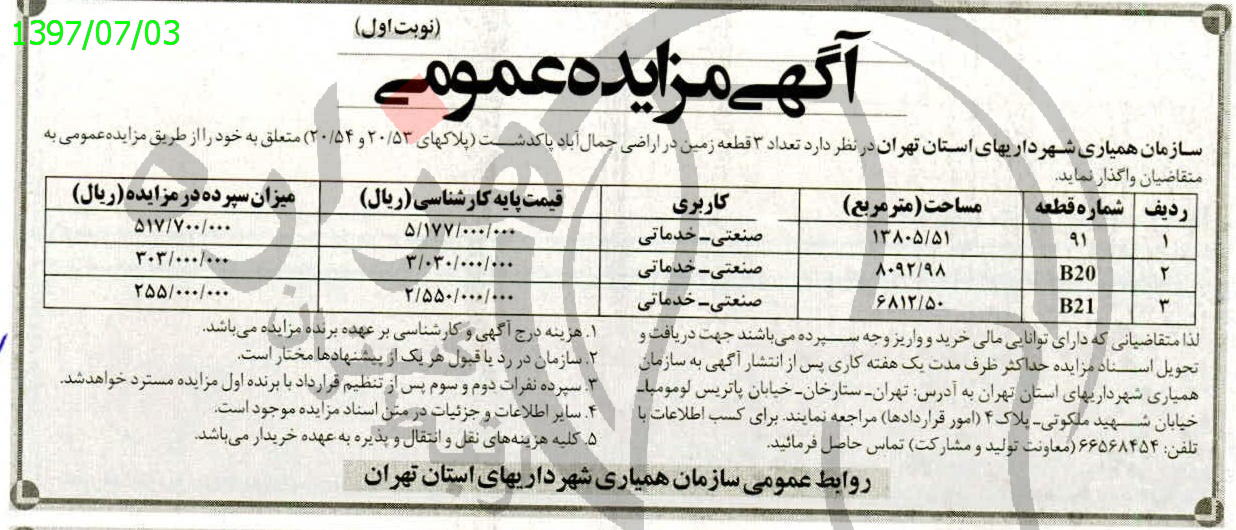 1397/07/03
(نوبت اول)
آگهی مزایده عمومی
سازمان همیاری شهرداریهای استان تهران در نظر دارد تعداد ۳ قطعه زمین در اراضی جمال‌آباد پاکدشت (پلاکهای ۲۰/۵۳ و ۲۰/۵۴) متعلق به خود را از طریق مزایده عمومی به
متقاضیان واگذار نماید.
ردیف شماره قطعه مساحت (متر مربع) کاربری قیمت پایه کارشناسی (ریال) میزان سپرده در مزایده (ریال)
۱ ۹۱ ۱۳۸۰۵/۵۱ صنعتی ـ خدماتی ۵/۱۷۷/۰۰۰/۰۰۰ ۵۱۷/۷۰۰/۰۰۰
۲ B20 ۸۰۹۲/۹۸ صنعتی ـ خدماتی ۳/۰۳۰/۰۰۰/۰۰۰ ۳۰۳/۰۰۰/۰۰۰
۳ B21 ۶۸۱۲/۵۰ صنعتی ـ خدماتی ۲/۵۵۰/۰۰۰/۰۰۰ ۲۵۵/۰۰۰/۰۰۰
لذا متقاضیانی که دارای توانایی مالی خرید و واریز وجه سپرده می‌باشند جهت دریافت و
تحویل اسناد مزایده حداکثر ظرف مدت یک هفته کاری پس از انتشار آگهی به سازمان
همیاری شهرداریهای استان تهران به آدرس: تهران ـ ستارخان ـ خیابان پاتریس لومومبا ـ
خیابان شهید ملکوتی ـ پلاک ۴ (امور قراردادها) مراجعه نمایند. برای کسب اطلاعات با
تلفن: ۶۶۵۶۸۴۵۴ (معاونت تولید و مشارکت) تماس حاصل فرمائید.
۱. هزینه درج آگهی و کارشناسی بر عهده برنده مزایده می‌باشد.
۲. سازمان در رد یا قبول هر یک از پیشنهادها مختار است.
۳. سپرده نفرات دوم و سوم پس از تنظیم قرارداد با برنده اول مزایده مسترد خواهد شد.
۴. سایر اطلاعات و جزئیات در متن اسناد مزایده موجود است.
۵. کلیه هزینه‌های نقل و انتقال و پذیره به عهده خریدار می‌باشد.
روابط عمومی سازمان همیاری شهرداریهای استان تهران